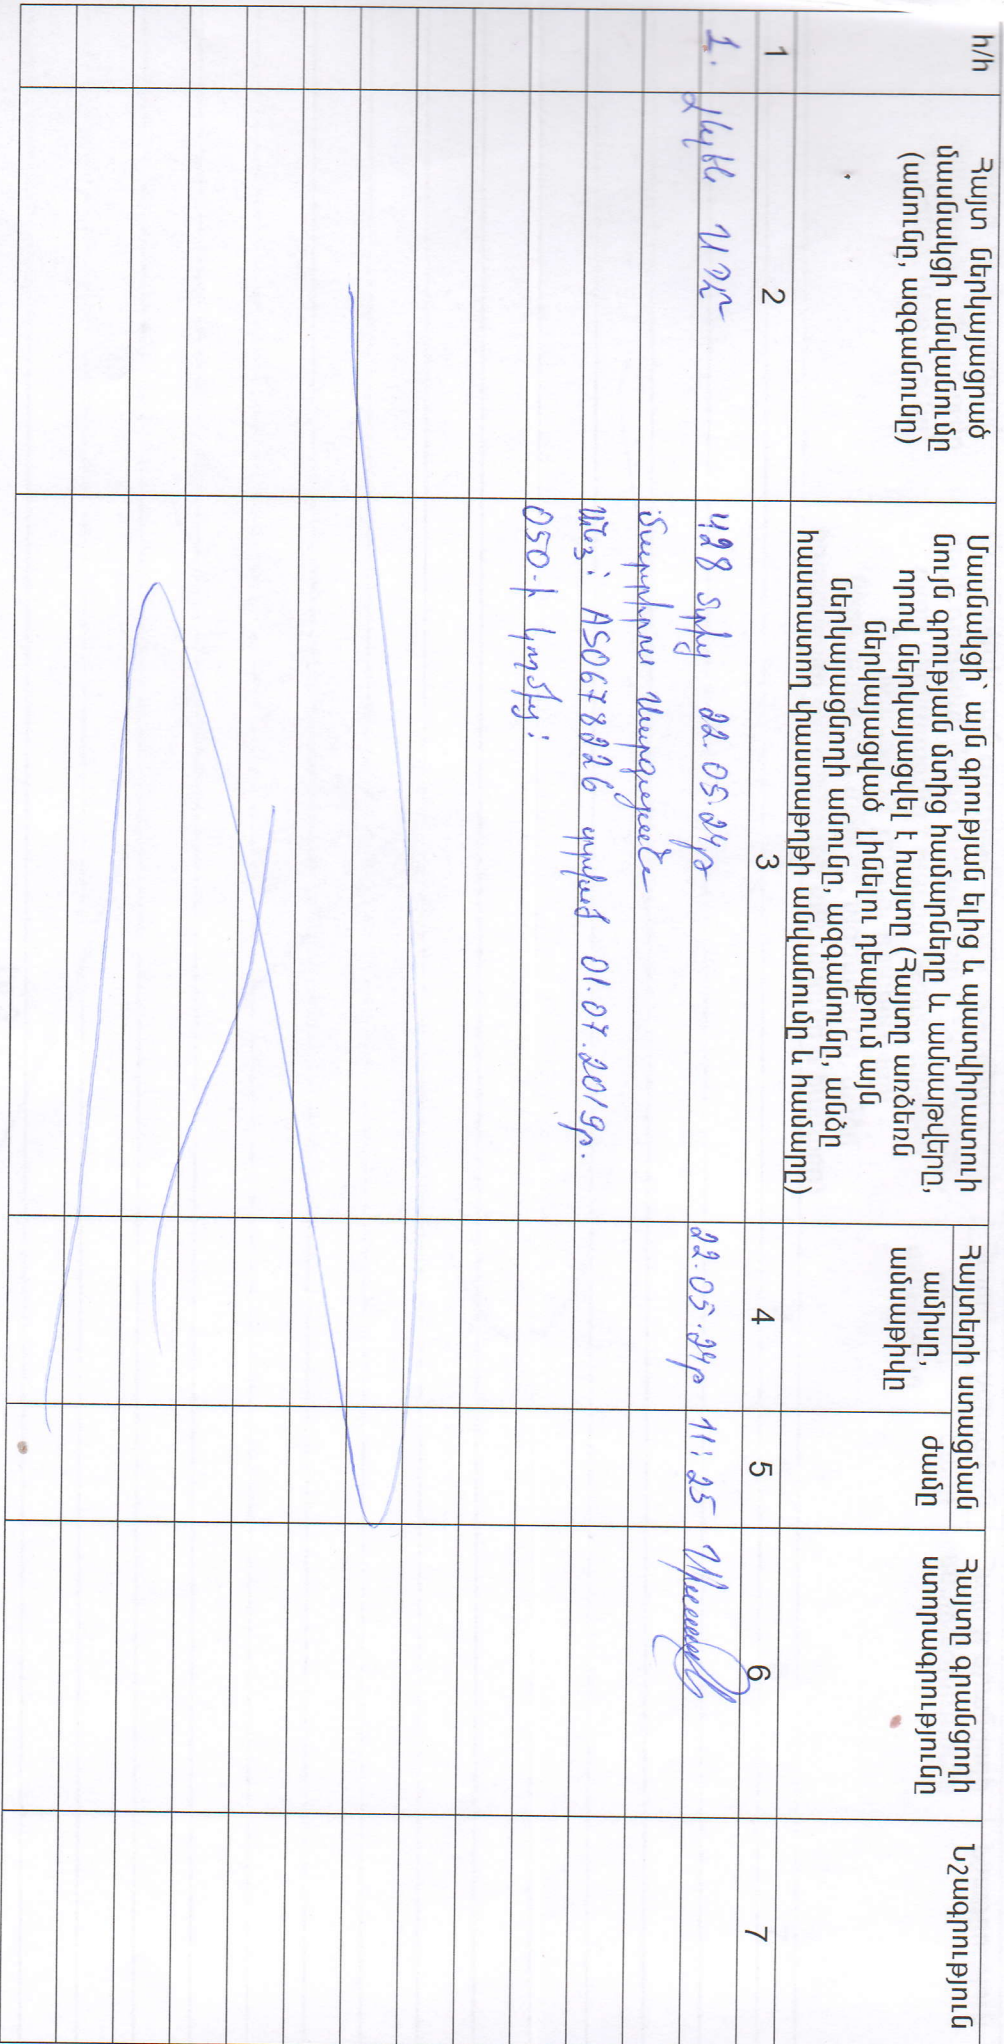 հ/հ
Հայտ ներկայացրած
մասնակցի անվանումը
(անունը, ազգանունը)
Մասնակցի՝ այն գրության ելից և պատվիրատուի
նույն գրության մտից համարները և ամսաթվերը,
որով ներկայացվել է հայտը (Հայտը առձեռն
ներկայացված լինելու դեպքում այն
ներկայացնողի անունը, ազգանունը, անձը
հաստատող փաստաթղթի անվանումը և համարը)
Հայտերի ստացման
ամիսը,
ամսաթիվը
ժամը
Հայտը գրանցողի
ստորագրությունը
Նշագրություն
1 2 3 4 5 6 7
1. ՍՊԸ 428 22.05.24թ 22.05.24թ 11:25
Սարգսյան
AS0678226 տրված 01.07.2019թ.
050-ի կողմից: